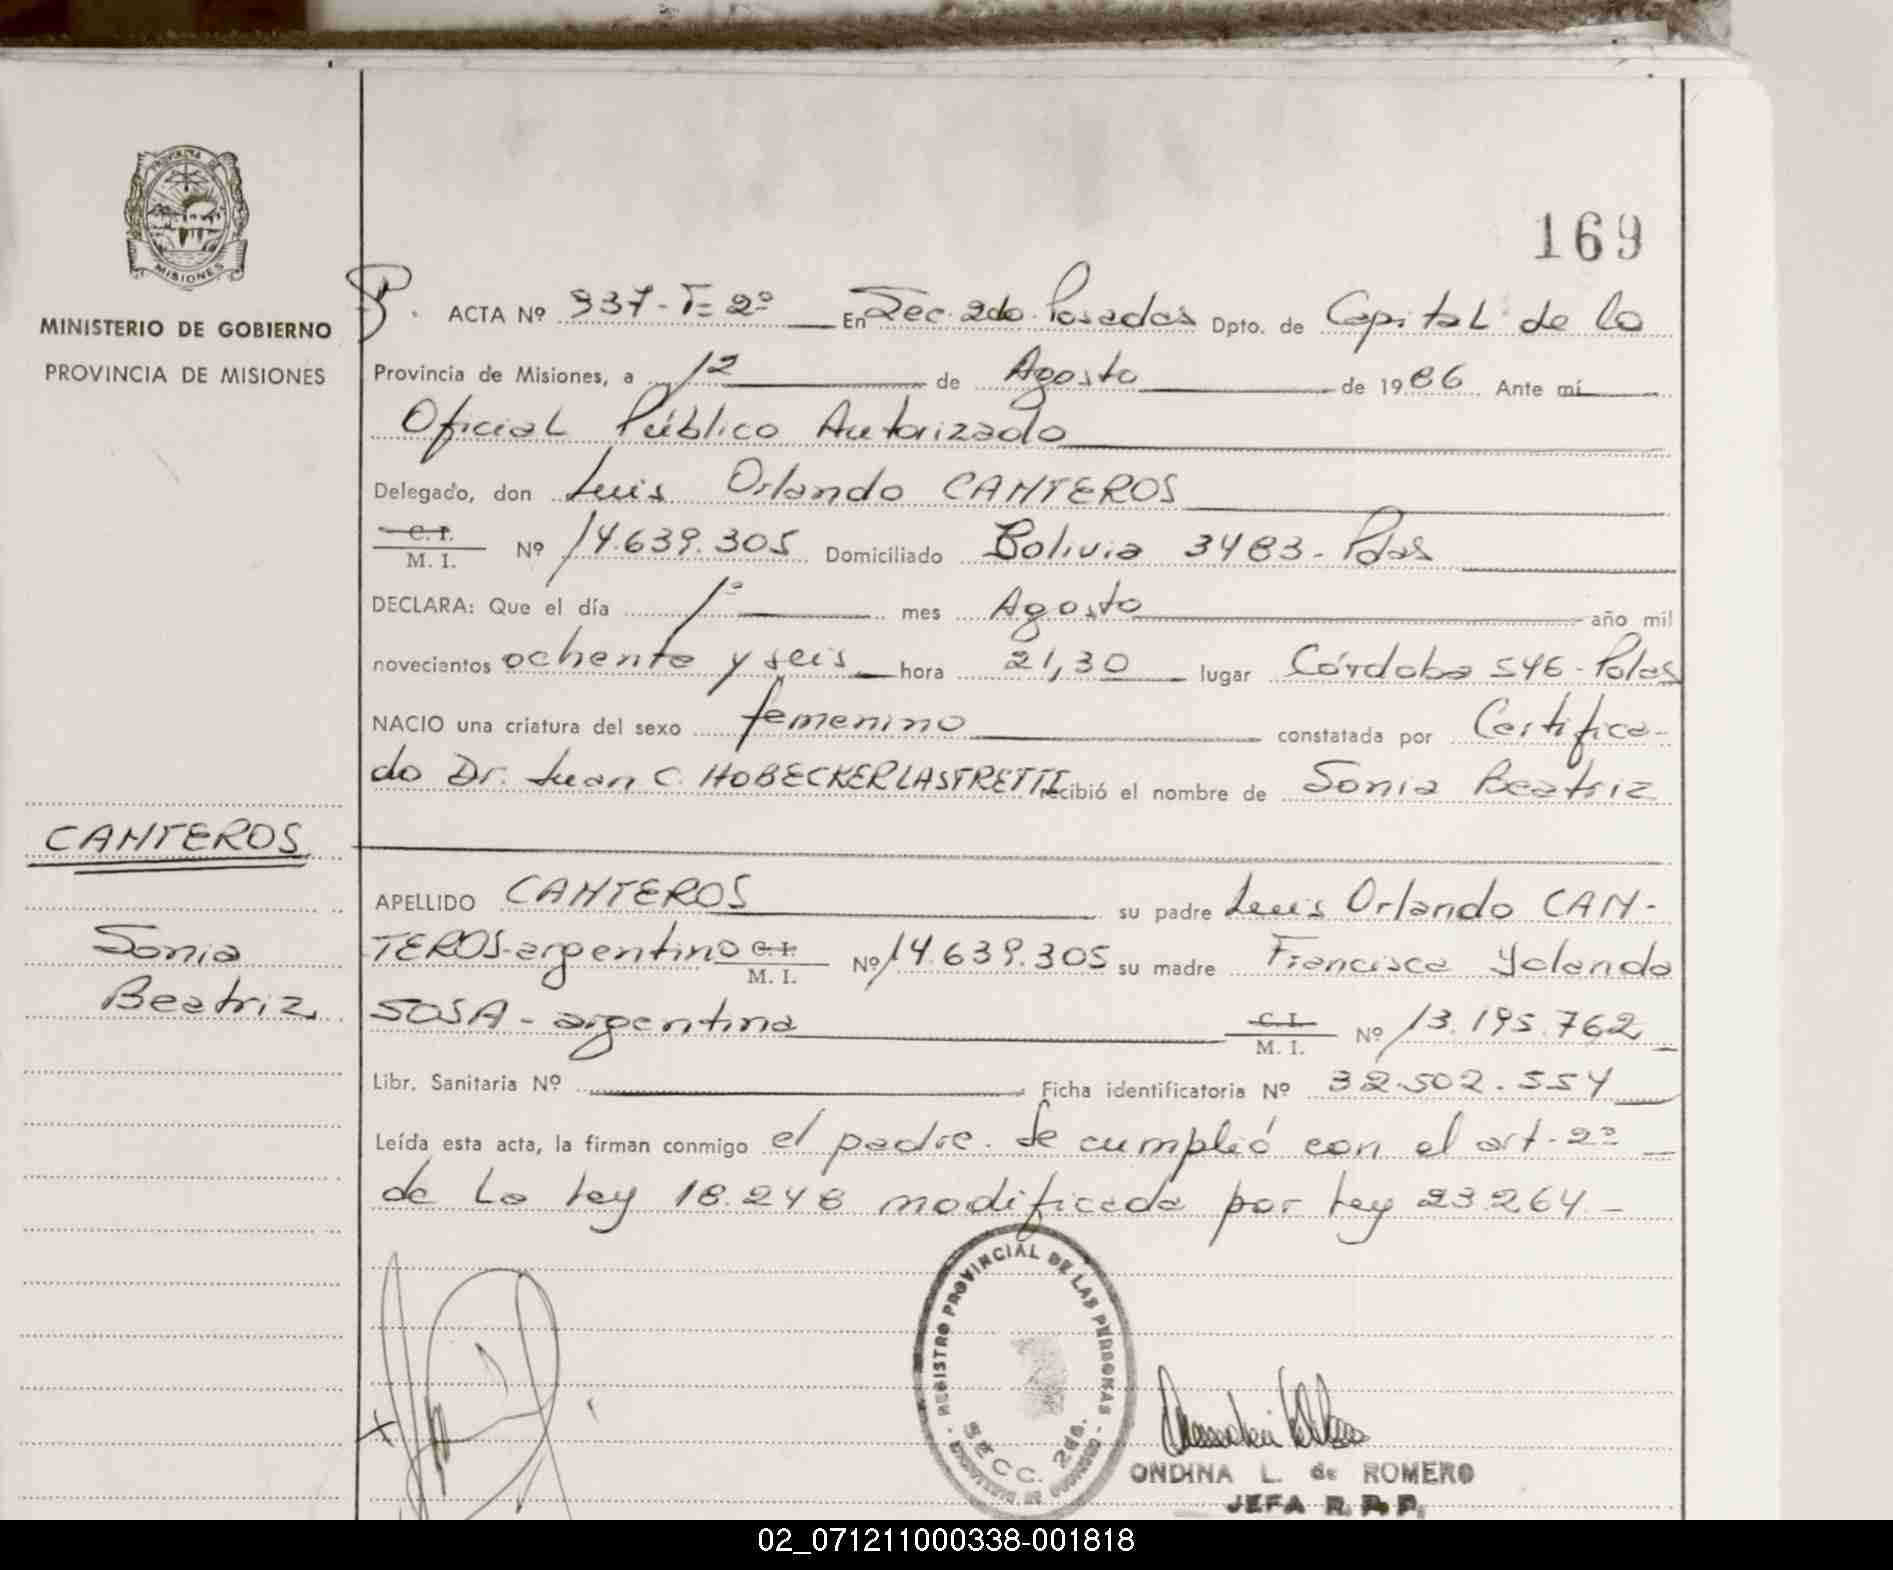 169
PROVINCIA DE
MISIONES
MINISTERIO DE GOBIERNO
PROVINCIA DE MISIONES
CANTEROS
Sonia
Beatriz
ACTA Nº 937-T=2º En Sec. 2da. Posadas Dpto. de Capital de la
Provincia de Misiones, a 12 de Agosto de 1986 Ante mí
Oficial Público Autorizado
Delegado, don Luis Orlando CANTEROS
C. I.
M. I. Nº 14.639.305 Domiciliado Bolivia 3483-Pdas
DECLARA: Que el día 1º mes Agosto año mil
novecientos ochenta y seis hora 21,30 lugar Córdoba 546-Pdas
NACIO una criatura del sexo femenino constatada por Certifica-
do Dr. Juan C. HOBECKER LASTRETTI recibió el nombre de Sonia Beatriz
APELLIDO CANTEROS su padre Luis Orlando CAN-
TEROS-argentino C. I. M. I. Nº 14.639.305 su madre Francisca Yolanda
SOSA-argentina C. I. M. I. Nº 13.195.762
Libr. Sanitaria Nº Ficha identificatoria Nº 32.502.554
Leída esta acta, la firman conmigo el padre. Se cumplió con el art. 2º
de la ley 18.248 modificada por ley 23.264.-
REGISTRO PROVINCIAL DE LAS PERSONAS
SECC. 2da.
ONDINA L. de ROMERO
JEFA R. P. P.
02_071211000338-001818